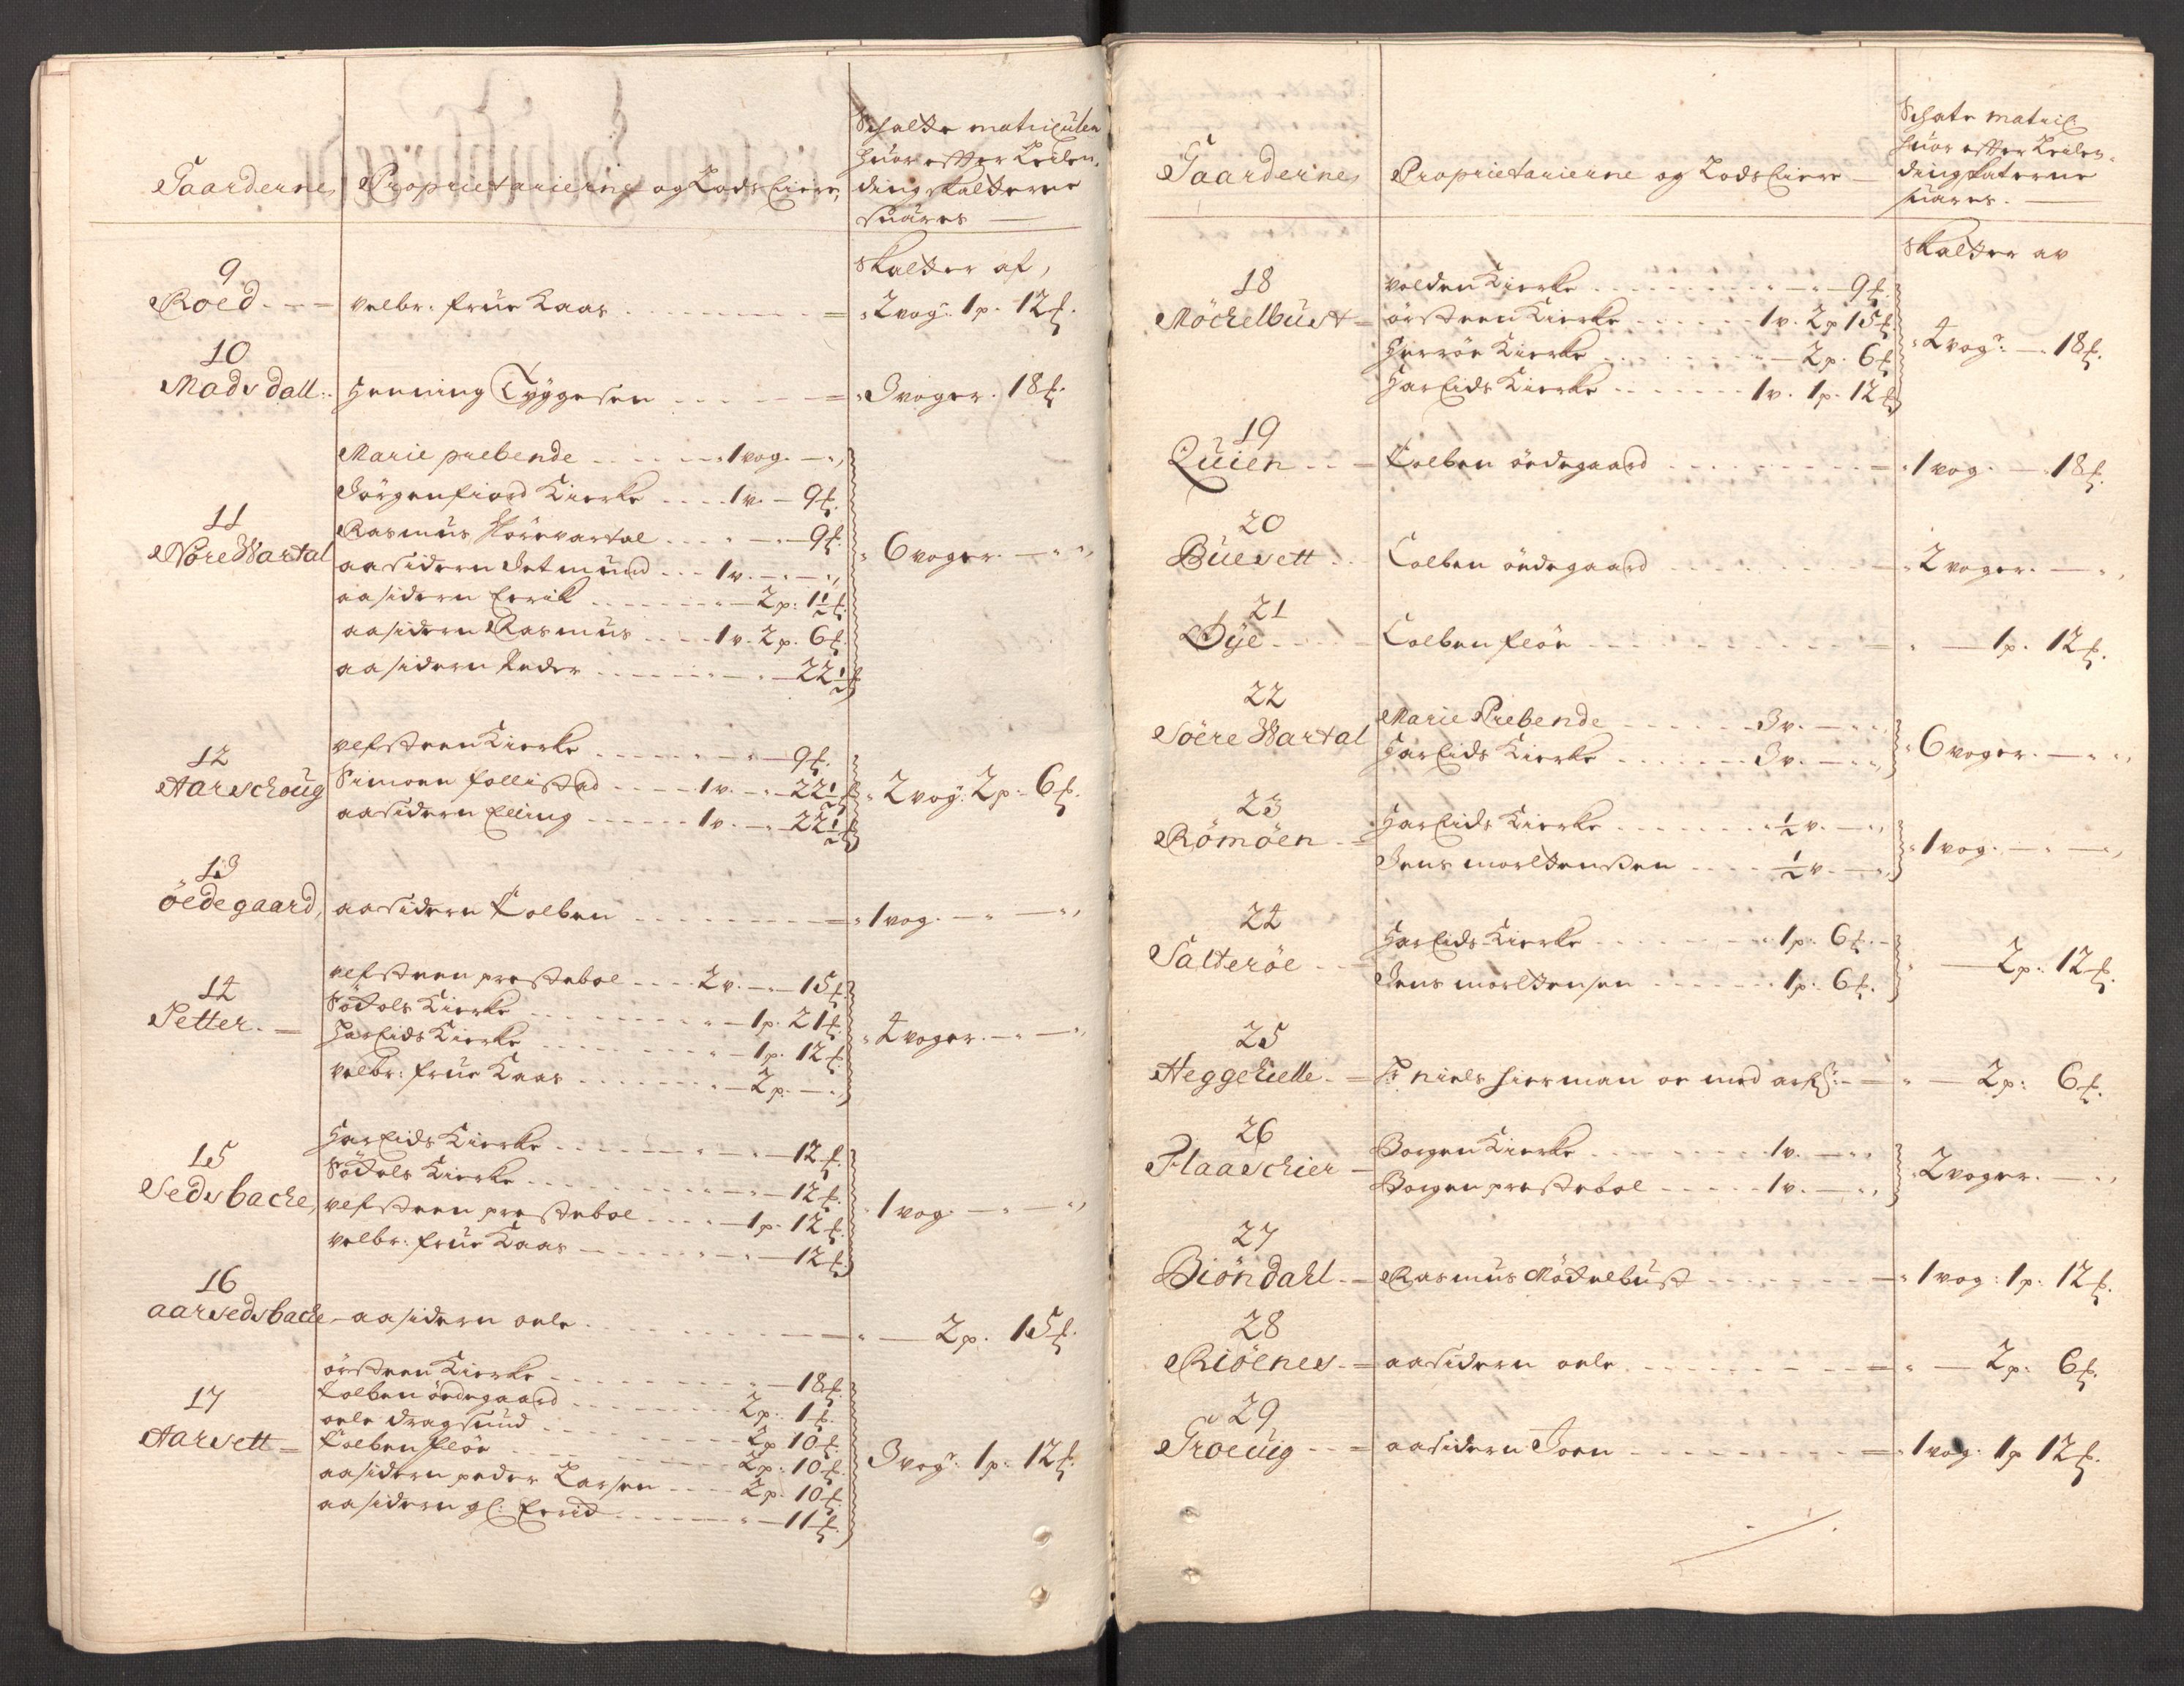 Gaarderne
Proprietarierne og Lods Eiere,
Schatte matriculen
huor effter Leilen-
dingskatterne
suares
Skatter af,
9
Roed
velbr: frue Kaas 2 vog: 1 p. 12 ℔.
10
Madsdall
Henning Tyggesen 3 voger. 18 ℔.
11
Nøre Wartal
Marie prebende 1 vog.
Jörgenfiord Kierke 1 v. 9 ℔.
Rasmus Nörevartal 9 ℔.
aasidern Jetmund 1 v.
aasidern Errik 2 p: 1½ ℔.
aasidern Rasmus 1 v. 2 p. 6 ℔.
aasidern Peder 22½ ℔
6 voger.
12
Aarschoug
vefsteen Kierke 9 ℔.
Simoen follistad 1 v. 22½ ℔
aasidern Elling 1 v. 22½ ℔
2 vog: 2 p: 6 ℔.
13
öedegaard,
aasidern Colben 1 vog.
14
Setter.
vefsteen prestebol 2 v. 15 ℔.
Södols Kierke 1 p. 21 ℔.
HarEids Kierke 1 p. 12 ℔.
velbr: frue Kaas 2 p.
4 voger.
15
Sedsbacke,
HarEids Kierke 12 ℔.
Södols Kierke 12 ℔.
vefsteen prestebol 1 p. 12 ℔.
velbr: frue Kaas 12 ℔.
1 vog.
16
aarsedsbacke
aasidern oele 2 p. 15 ℔.
17
Aarsett
örsteen Kierke 18 ℔.
Colben öedegaard 2 p. 1 ℔.
oele dragsund 2 p 10 ℔.
Colben flöe 2 p. 10 ℔.
aasidern peder Larsen 2 p. 10 ℔.
aasidern gl: Errid 11 ℔.
3 vogr: 1 p: 12 ℔.
Gaarderne
Proprietarierne og Lods Eiere
Schate matric:
huor effter Leilen-
dingskaterne
suares.
Skatter av
18
Möckelbust
volden Kierke 9 ℔.
örsteen Kierke 1 v. 2 p 15 ℔.
Herröe Kierke 2 p. 6 ℔
HarEids Kierke 1 v. 1 p. 12 ℔
4 vogr: 18 ℔.
19
Quien
Colben öedegaard 1 vog. 18 ℔.
20
Buesett
Colben öedegaard 2 voger.
21
Dye
Colben flöe 1 p. 12 ℔.
22
Söere Wartal
Marie Prebende 3 v.
HarEids Kierke 3 v.
6 voger.
23
Römöen
HarEids Kierke ½ v.
Jens mortensen ½ v.
1 vog.
24
Salteröe
HarEids Kierke 1 p. 6 ℔.
Jens mortensen 1 p. 6 ℔.
2 p: 12 ℔.
25
Heggekielle
Hr niels hierman oe med arf: 2 p: 6 ℔.
26
Flaaschier
Borgen Kierke 1 v.
Borgen prestebol 1 v.
2 voger.
27
Biöndahl
Rasmus Möckelbust 1 vog: 1 p: 12 ℔.
28
Riöenes
aasidern oele 2 p: 6 ℔.
29
Groevig
aasidern Joen 1 vog: 1 p 12 ℔.